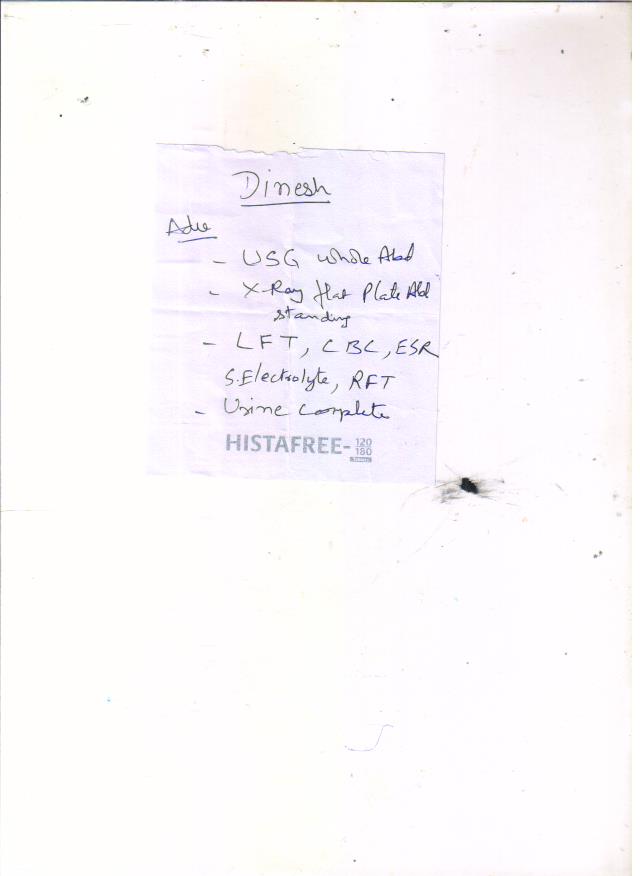 Dinesh
Adv
- USG whole Abd
- X-Ray flat Plate Abd
standing
- LFT, CBC, ESR
S.Electrolyte, RFT
- Urine complete
HISTAFREE-120
180
Tablets